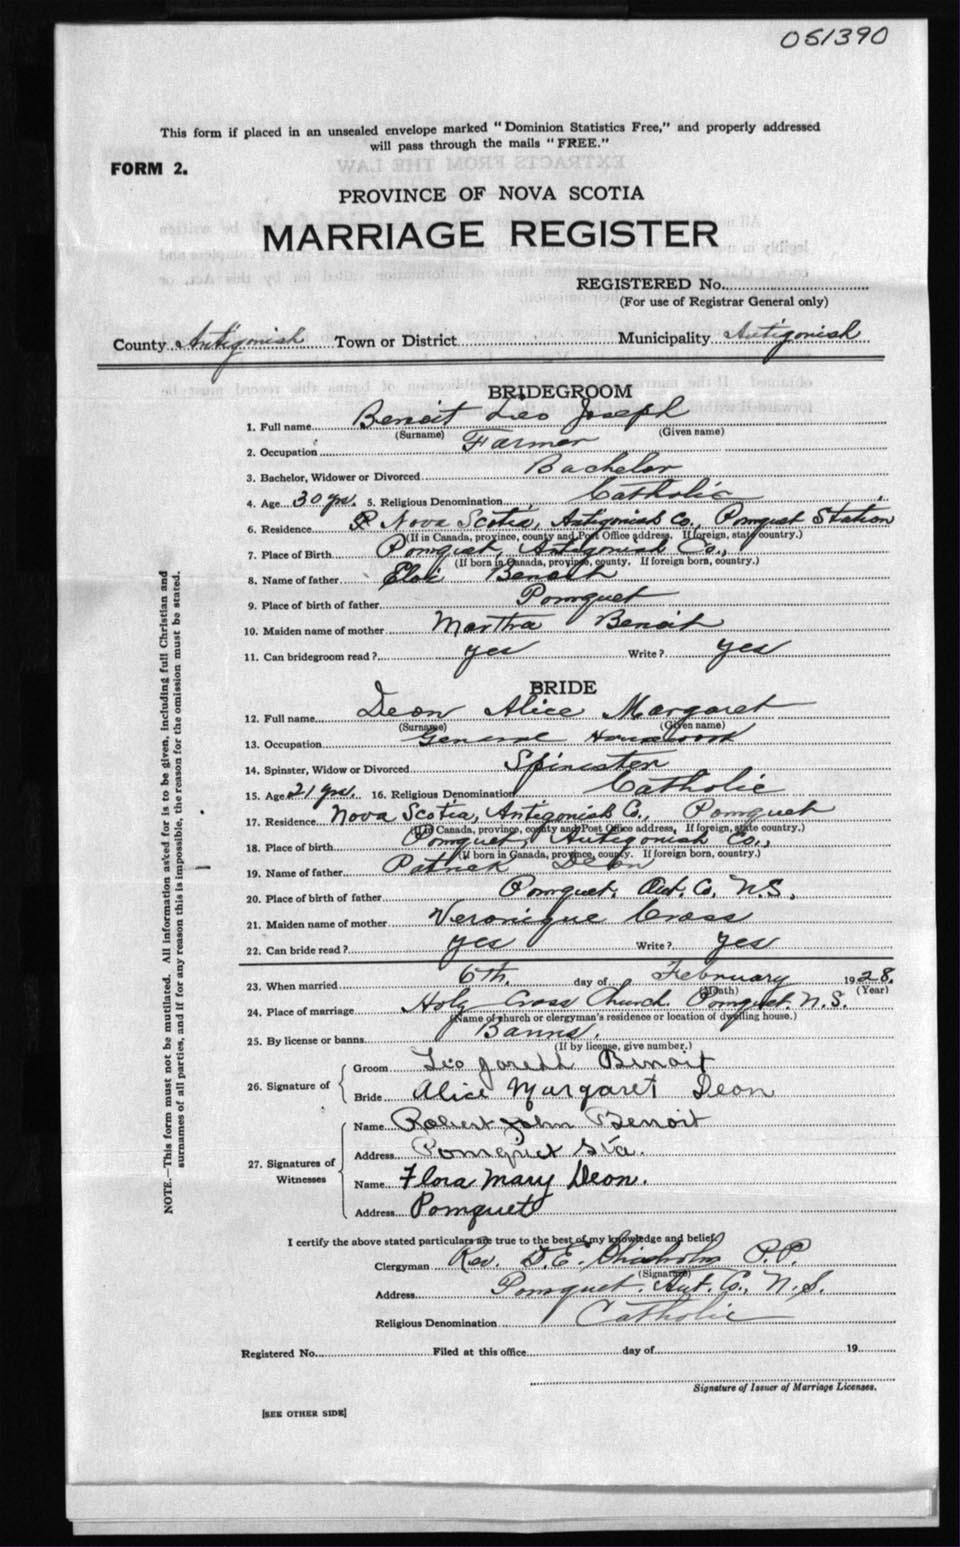 051390
This form if placed in an unsealed envelope marked "Dominion Statistics Free," and properly addressed
will pass through the mails "FREE."
FORM 2.
PROVINCE OF NOVA SCOTIA
MARRIAGE REGISTER
REGISTERED No.
(For use of Registrar General only)
County Antigonish Town or District Municipality Antigonish
BRIDEGROOM
1. Full name Benoit Leo Joseph
(Surname) (Given name)
2. Occupation Farmer
3. Bachelor, Widower or Divorced Bachelor
4. Age 30 yrs. 5. Religious Denomination Catholic
6. Residence Nova Scotia, Antigonish Co., Pomquet Station
(If in Canada, province, county and Post Office address. If foreign, state country.)
7. Place of Birth Pomquet, Antigonish Co.,
(If born in Canada, province, county. If foreign born, country.)
8. Name of father Eloi Benoit
9. Place of birth of father Pomquet
10. Maiden name of mother Martha Benoit
11. Can bridegroom read? yes Write? yes
BRIDE
12. Full name Deon Alice Margaret
(Surname) (Given name)
13. Occupation General Housework
14. Spinster, Widow or Divorced Spinster
15. Age 21 yrs. 16. Religious Denomination Catholic
17. Residence Nova Scotia, Antigonish Co., Pomquet
(If in Canada, province, county and Post Office address, If foreign, state country.)
18. Place of birth Pomquet, Antigonish Co.,
(If born in Canada, province, county. If foreign born, country.)
19. Name of father Patrick Deon
20. Place of birth of father Pomquet, Ant. Co, N.S.
21. Maiden name of mother Veronique Cross
22. Can bride read? yes Write? yes
23. When married 6th. day of February 1928.
(Month) (Year)
24. Place of marriage Holy Cross Church Pomquet. N.S.
(Name of church or clergyman's residence or location of dwelling house.)
25. By license or banns Banns.
(If by license, give number.)
26. Signature of
Groom Leo Joseph Benoit
Bride Alice Margaret Deon
27. Signatures of Witnesses
Name Robert John Benoit
Address Pomquet Sta.
Name Flora Mary Deon.
Address Pomquet
I certify the above stated particulars are true to the best of my knowledge and belief.
Clergyman Rev. D. E. Chisholm P.P.
(Signature)
Address Pomquet. Ant. Co., N.S.
Religious Denomination Catholic
Registered No. Filed at this office day of 19
Signature of Issuer of Marriage Licenses.
[SEE OTHER SIDE]
NOTE.—This form must not be mutilated. All information asked for is to be given, including full Christian and
surnames of all parties, and if for any reason this is impossible, the reason for the omission must be stated.